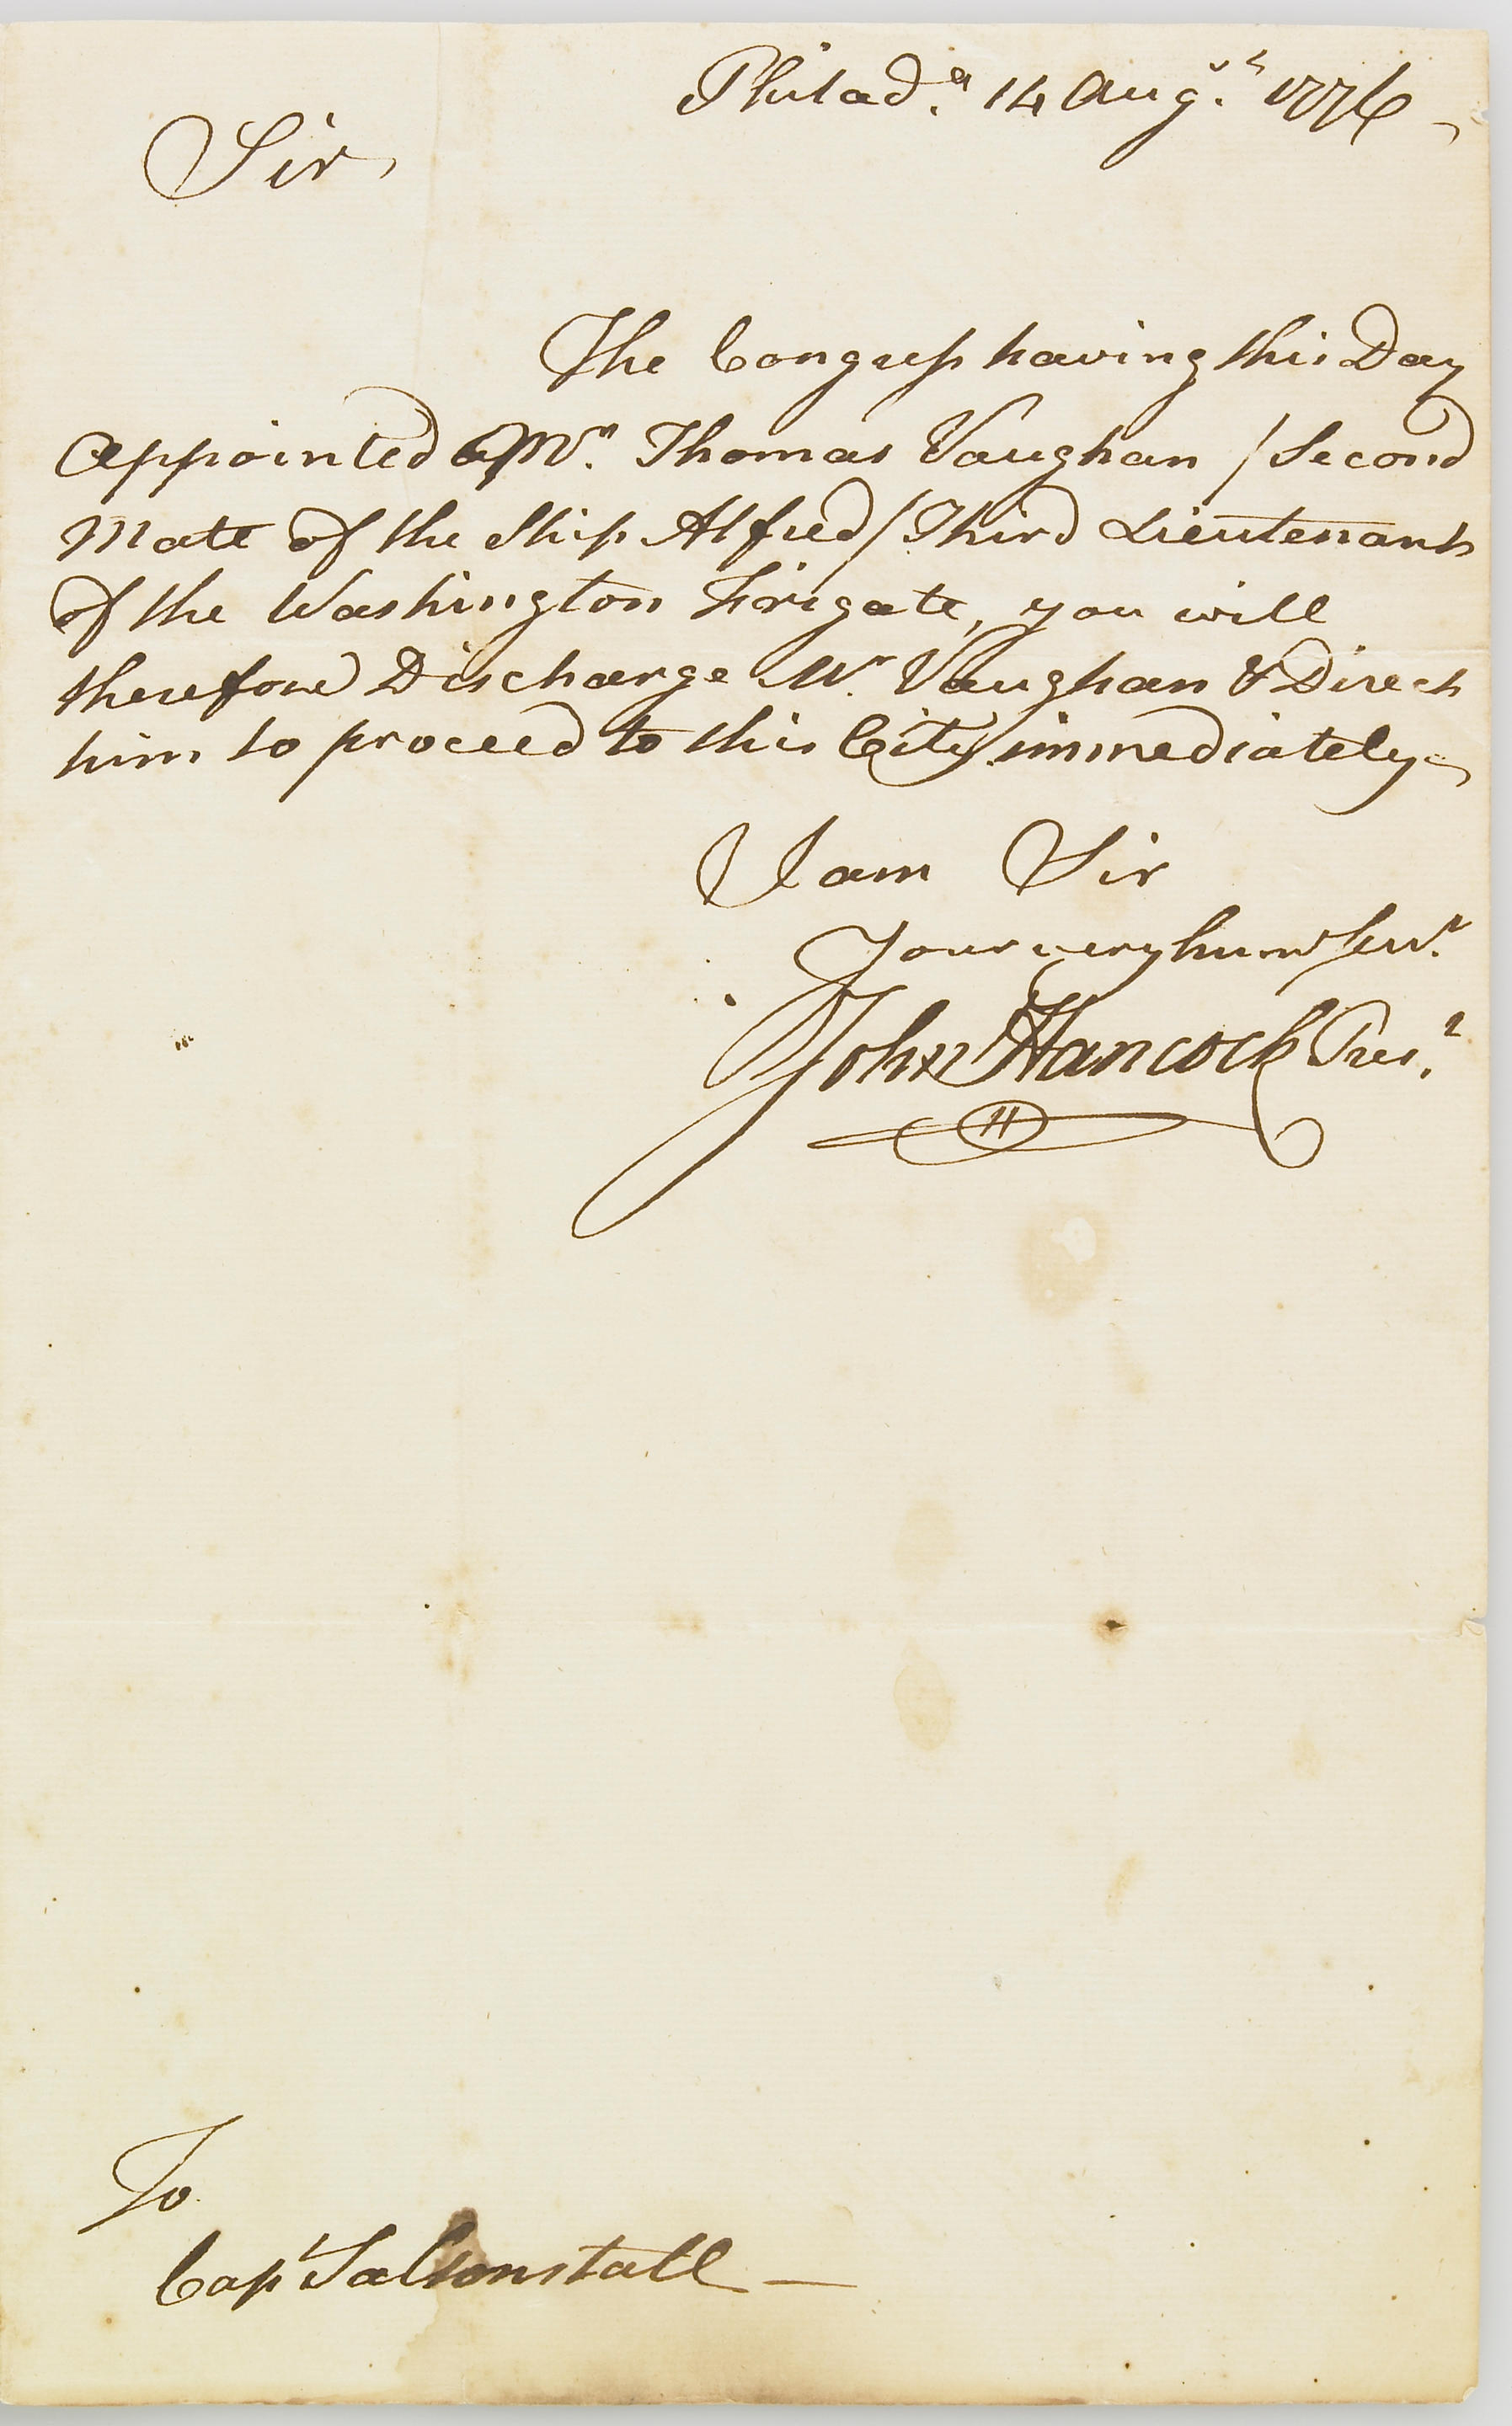 Philad.ᵃ 14 Augᵗ. 1776
Sir,
The Congress having this Day
appointed Mʳ. Thomas Vaughan /Second
Mate of the Ship Alfred/ Third Lieutenant
of the Washington Frigate, you will
therefore Discharge Mʳ. Vaughan & Direct
him to proceed to this City immediately
I am Sir
Your very hum Servᵗ.
John Hancock Presᵗ.
H
To
Capᵗ Saltonstall —